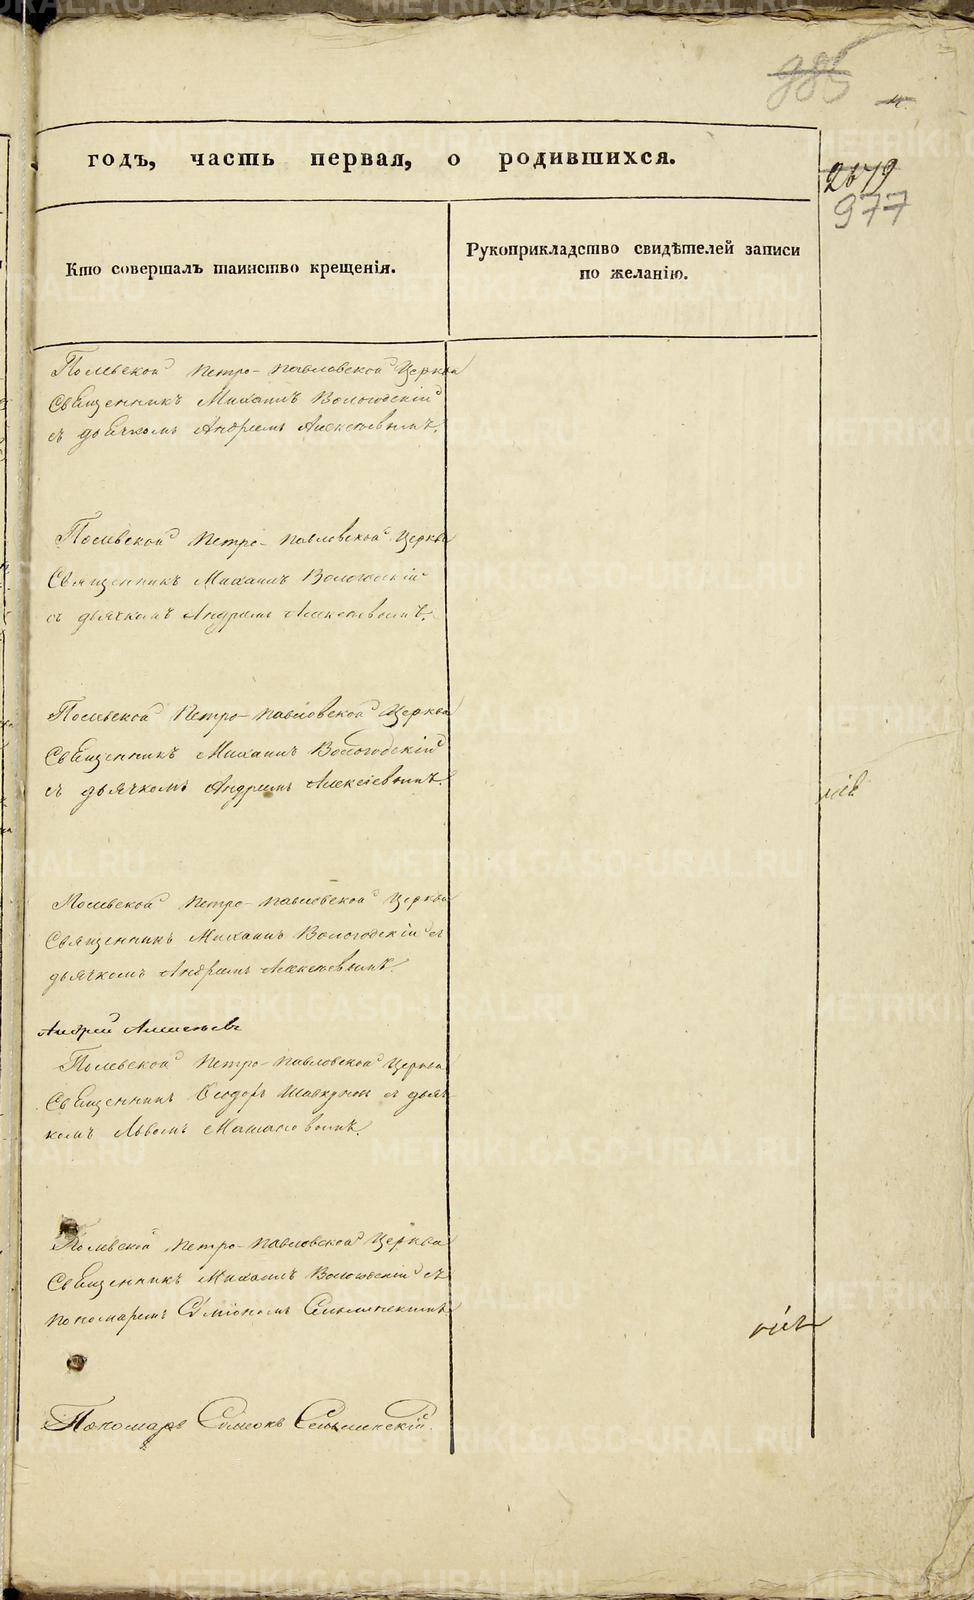 985
годъ, часть первая, о родившихся.
2079
977
Кто совершалъ таинство крещенія.
Рукоприкладство свидѣтелей записи
по желанію.
Полевской Петро-Павловской Церкви
Священникъ Михаилъ Вологодскій
съ дьячкомъ Андреемъ Алексѣевымъ.
Полевской Петро-Павловской Церкви
Священникъ Михаилъ Вологодскій
съ дьячкомъ Андреемъ Алексѣевымъ.
Полевской Петро-Павловской Церкви
Священникъ Михаилъ Вологодскій
съ дьячкомъ Андреемъ Алексіевымъ.
Полевской Петро-Павловской Церкви
Священникъ Михаилъ Вологодскій съ
дьячкомъ Андреемъ Алексѣевымъ.
Андрей Алексѣевъ
Полевской Петро-Павловской Церкви
Священникъ Ѳеодоръ съ дьяч-
комъ Львомъ
Полевской Петро-Павловской Церкви
Священникъ Михаилъ Вологодскій съ
пономаремъ Симіономъ
Пономарь Симеонъ
METRIKI.GASO-URAL.RU